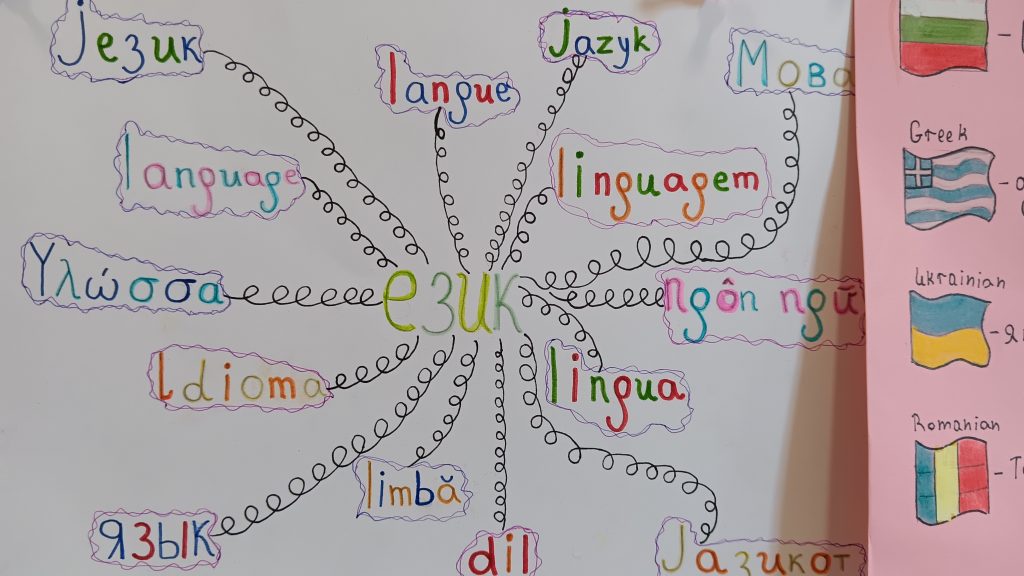 Језик
jazyk
langue
Мова
Greek
language
linguagem
Υλώσσα
език
ngôn ngữ
Ukrainian
Idioma
lingua
Romanian
limbă
язык
dil
Јазикот